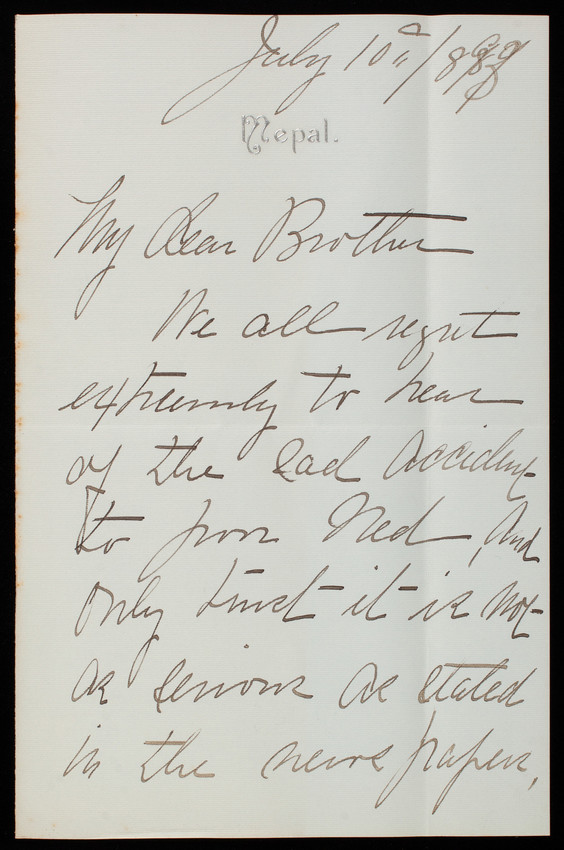 July 10th/89
Nepal.
My dear Brother
We all regret
extreemly to hear
of the sad accident
to poor Ned, and
only trust it is not
as serious as stated
in the news papers,